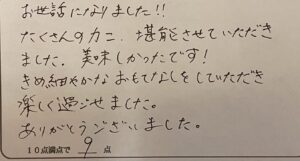 お世話になりました!!
たくさんのカニ、堪能させていただき
ました。美味しかったです!
きめ細やかなおもてなしをしていただき
楽しく過ごせました。
ありがとうございました。
10点満点で 9 点